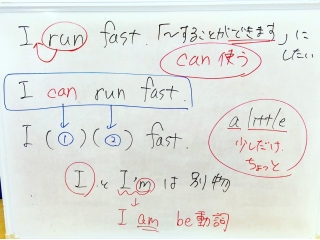 I run fast. 「〜することができます」に
したい
can 使う
I can run fast.
I (①)(②) fast.
a little
少しだけ
ちょっと
I と I'm は 別物
I am be動詞